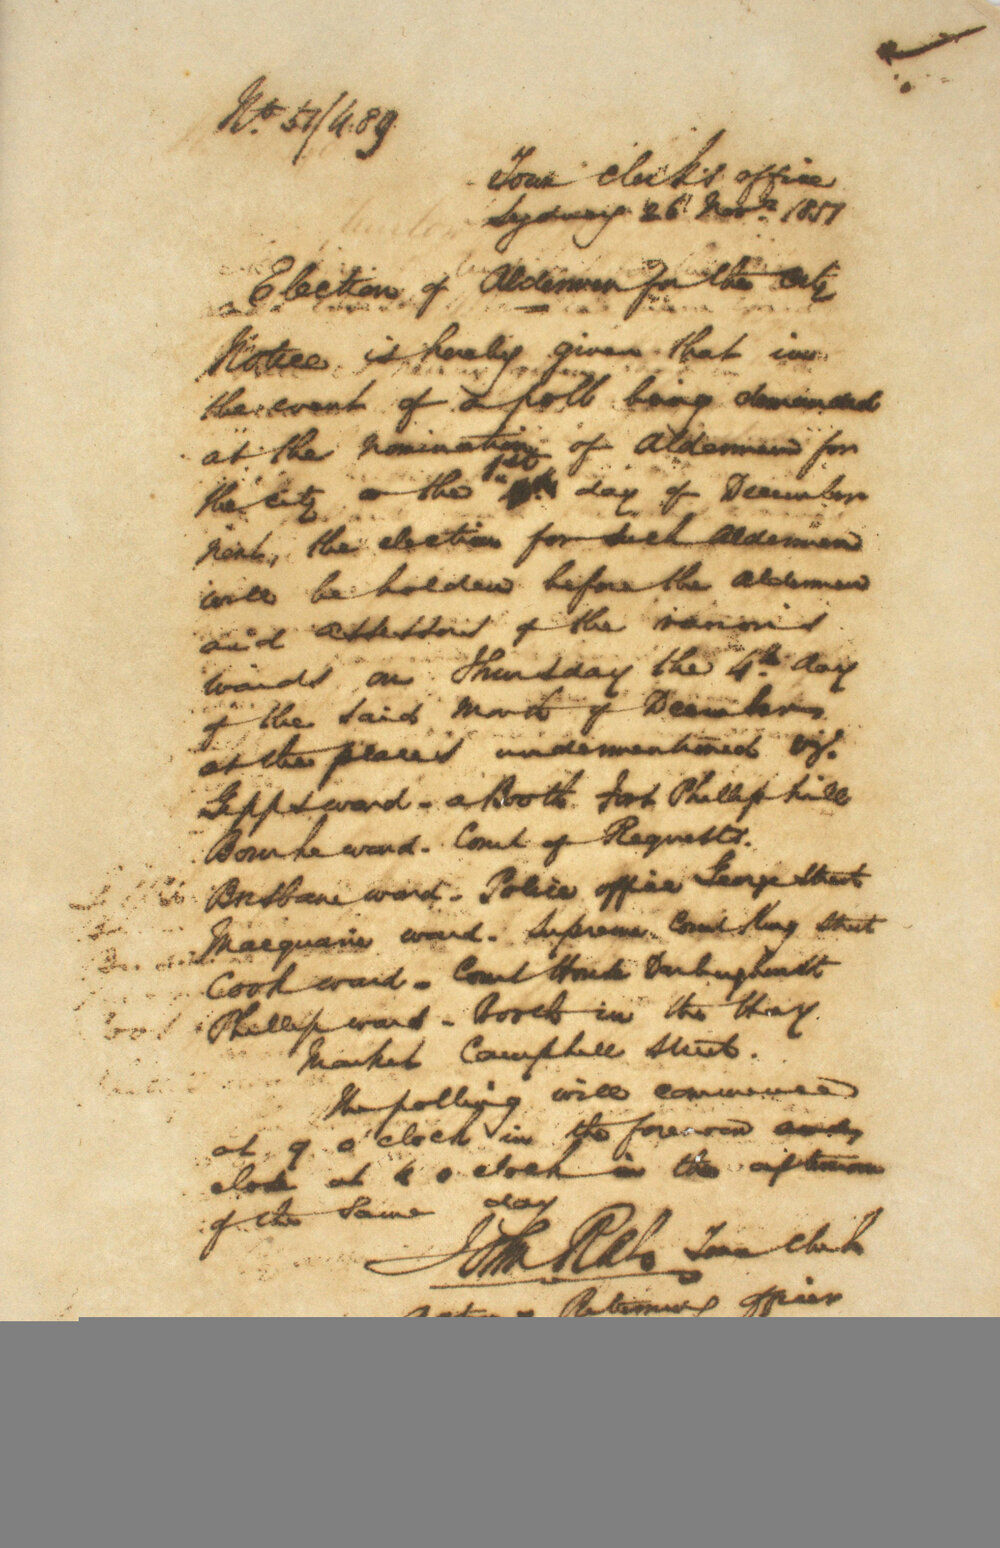 No. 51/489
Town Clerk's office
Sydney 26 Novr. 1851
Election of Aldermen for the City
Notice is hereby given that in
the event of a poll being demanded
at the nomination of Aldermen for
the city on the 1st day of December
next, the election for such Aldermen
will be holden before the Aldermen
and assessors of the various
wards on Thursday the 4th day
of the said Month of December
at the places undermentioned viz.
Gipps ward - a Booth Fort Phillip hill
Bourke ward - Court of Requests.
Brisbane ward - Police office George Street
Macquarie ward - Supreme Court King Street
Cook ward - Court House Darlinghurst
Phillip ward - Booth in the Hay
Market Campbell Street.
The polling will commence
at 9 o'clock in the forenoon and
close at 4 o clock in the afternoon
of the Same day
John Rae Town Clerk
Returning officer